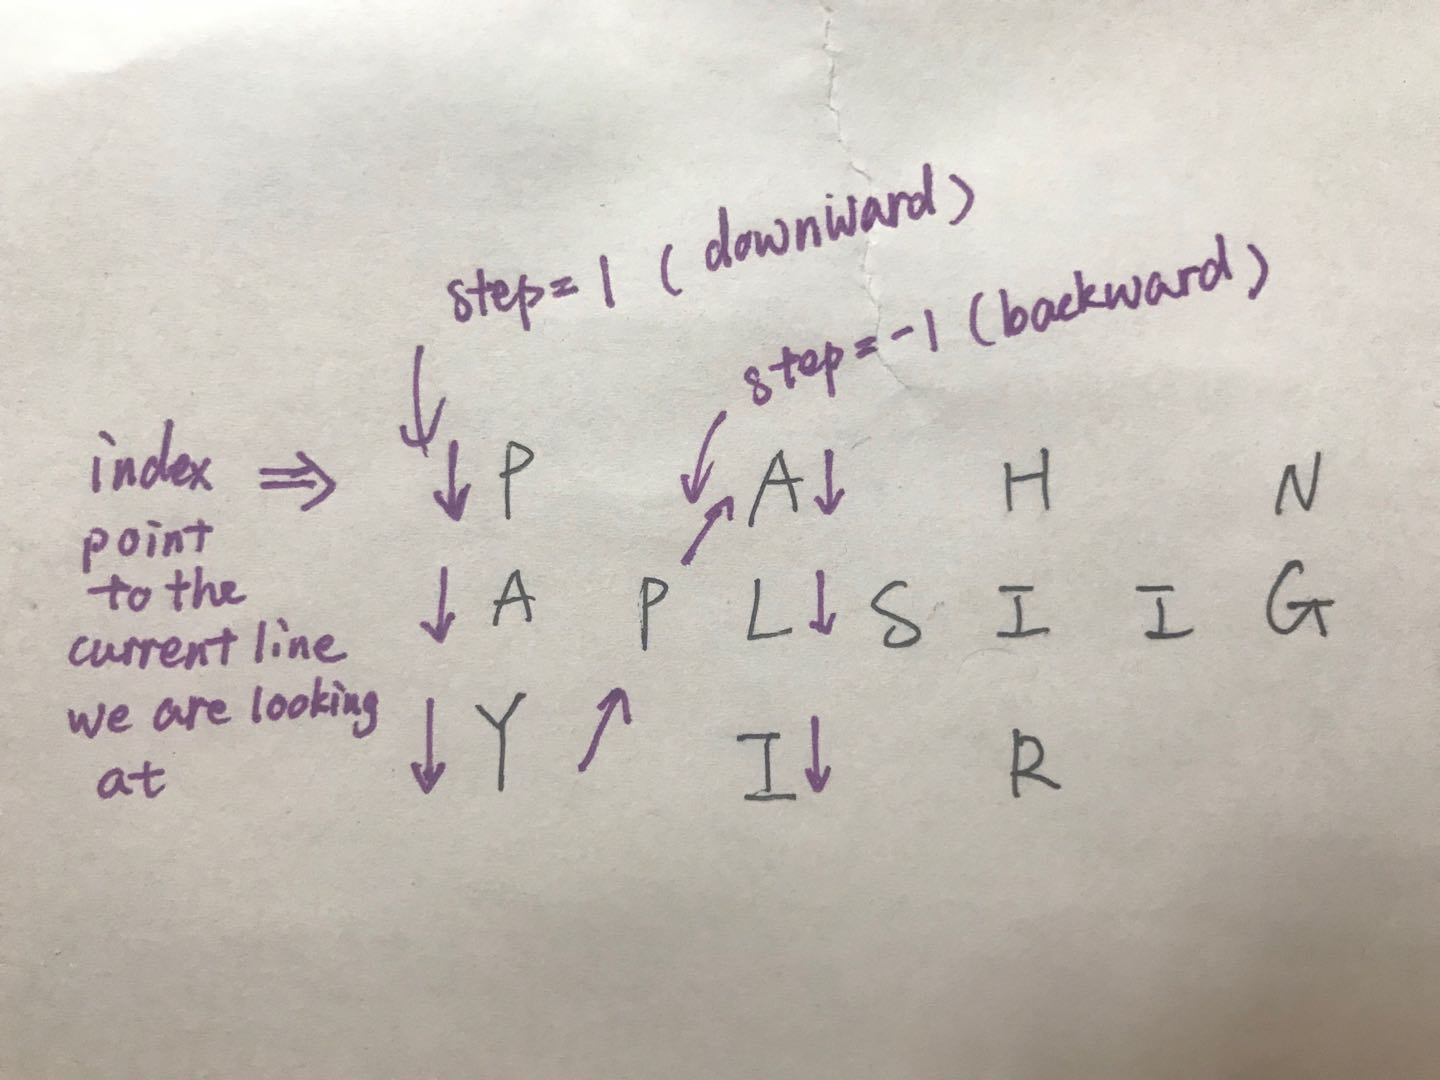 step=1 (downward)
step=-1 (backward)
index ⇒
point
to the
current line
we are looking
at
↓ P ↗ A ↓ H N
↓ A P L ↓ S I I G
↓ Y ↗ I ↓ R